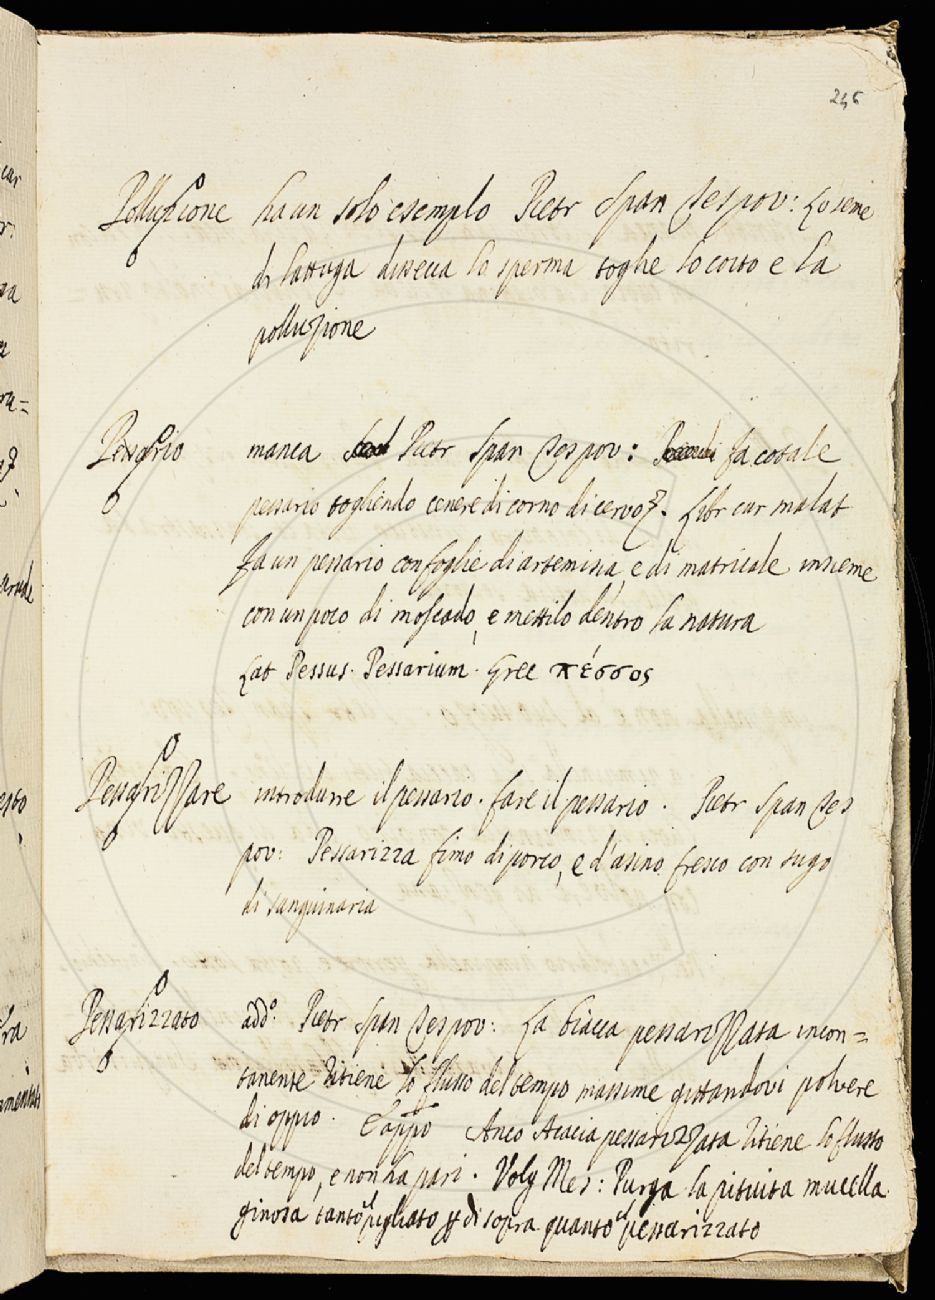 246
Polluzione ha un solo esemplo Pietr Span Tes pov: Lo seme
di lattuga disecca lo sperma toglie lo coito e la
polluzione
Pessario manca Pietr Span Tes pov: fa cotale
pessario togliendo cenere di corno di cervo. Libr cur malat
fa un pessario con foglie di artemisia, e di matricale insieme
con un poco di moscado, e mettilo dentro la natura
Lat Pessus. Pessarium. Grec πέσσος
Pessarizzare introdurre il pessario. fare il pessario. Pietr Span Tes
pov: Pessarizza fimo di porco, e d'asino fresco con sugo
di sanguinaria
Pessarizzato add. Pietr Span Tes pov: La biacca pessarizzata incon=
tanente ritiene lo flusso del tempo massime gittandovi polvere
di oppio. E appo Anco Acacia pessarizzata ritiene lo flusso
del tempo, e non ha pari. Volg Mes: Purga la pituita mucella
ginosa tanto il pigliato di sopra quanto il pessarizzato